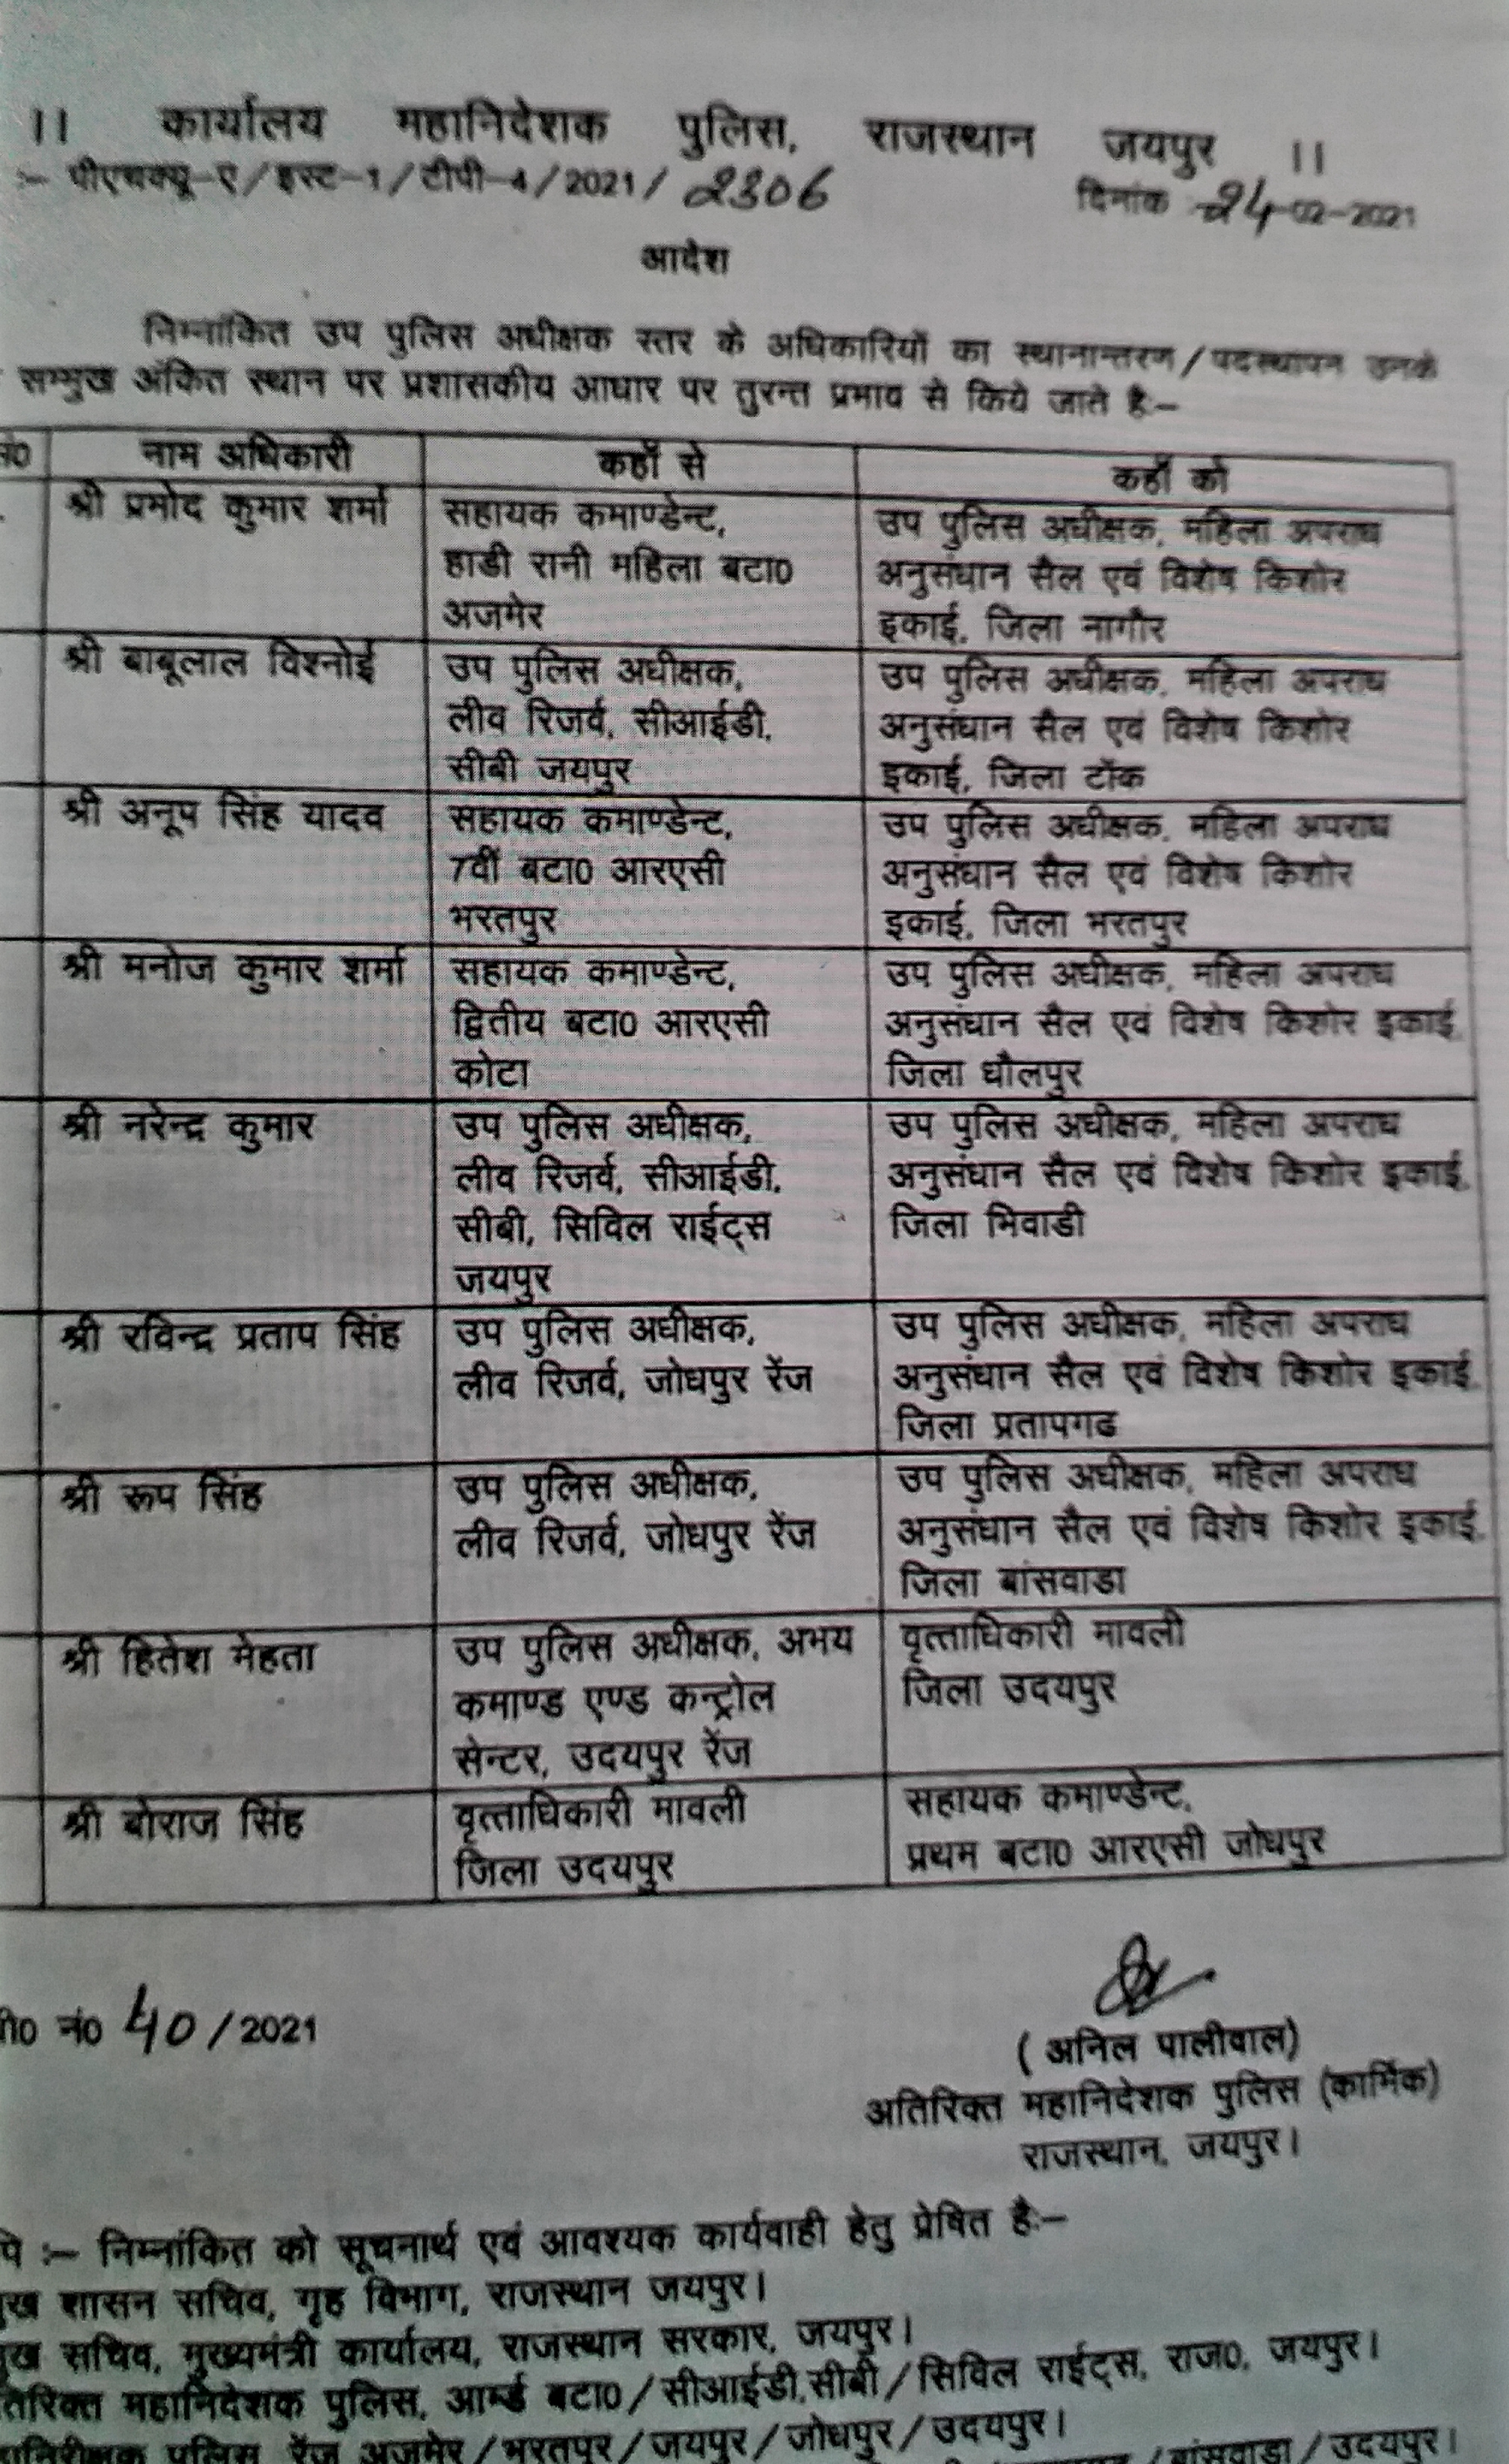 ।। कार्यालय महानिदेशक पुलिस, राजस्थान जयपुर ।।
:- पीएचक्यू-ए/इस्ट-1/टीपी-4/2021/ 2306 दिनांक 24-02-2021
आदेश
निम्नांकित उप पुलिस अधीक्षक स्तर के अधिकारियों का स्थानान्तरण/पदस्थापन उनके
सम्मुख अंकित स्थान पर प्रशासकीय आधार पर तुरन्त प्रभाव से किये जाते है:-
नं0 नाम अधिकारी कहाँ से कहाँ को
श्री प्रमोद कुमार शर्मा सहायक कमाण्डेन्ट, उप पुलिस अधीक्षक, महिला अपराध
हाडी रानी महिला बटा0 अनुसंधान सैल एवं विशेष किशोर
अजमेर इकाई, जिला नागौर
श्री बाबूलाल विश्नोई उप पुलिस अधीक्षक, उप पुलिस अधीक्षक, महिला अपराध
लीव रिजर्व, सीआईडी, अनुसंधान सैल एवं विशेष किशोर
सीबी जयपुर इकाई, जिला टोंक
श्री अनूप सिंह यादव सहायक कमाण्डेन्ट, उप पुलिस अधीक्षक, महिला अपराध
7वीं बटा0 आरएसी अनुसंधान सैल एवं विशेष किशोर
भरतपुर इकाई, जिला भरतपुर
श्री मनोज कुमार शर्मा सहायक कमाण्डेन्ट, उप पुलिस अधीक्षक, महिला अपराध
द्वितीय बटा0 आरएसी अनुसंधान सैल एवं विशेष किशोर इकाई,
कोटा जिला धौलपुर
श्री नरेन्द्र कुमार उप पुलिस अधीक्षक, उप पुलिस अधीक्षक, महिला अपराध
लीव रिजर्व, सीआईडी, अनुसंधान सैल एवं विशेष किशोर इकाई,
सीबी, सिविल राईट्स जिला भिवाडी
जयपुर
श्री रविन्द्र प्रताप सिंह उप पुलिस अधीक्षक, उप पुलिस अधीक्षक, महिला अपराध
लीव रिजर्व, जोधपुर रेंज अनुसंधान सैल एवं विशेष किशोर इकाई,
जिला प्रतापगढ
श्री रूप सिंह उप पुलिस अधीक्षक, उप पुलिस अधीक्षक, महिला अपराध
लीव रिजर्व, जोधपुर रेंज अनुसंधान सैल एवं विशेष किशोर इकाई,
जिला बांसवाडा
श्री हितेश मेहता उप पुलिस अधीक्षक, अभय वृत्ताधिकारी मावली
कमाण्ड एण्ड कन्ट्रोल जिला उदयपुर
सेन्टर, उदयपुर रेंज
श्री बोराज सिंह वृत्ताधिकारी मावली सहायक कमाण्डेन्ट,
जिला उदयपुर प्रथम बटा0 आरएसी जोधपुर
नं0 40/2021
( अनिल पालीवाल)
अतिरिक्त महानिदेशक पुलिस (कार्मिक)
राजस्थान, जयपुर।
:- निम्नांकित को सूचनार्थ एवं आवश्यक कार्यवाही हेतु प्रेषित है:-
शासन सचिव, गृह विभाग, राजस्थान जयपुर।
सचिव, मुख्यमंत्री कार्यालय, राजस्थान सरकार, जयपुर।
महानिदेशक पुलिस, आर्म्ड बटा0/सीआईडी,सीबी/सिविल राईट्स, राज0, जयपुर।
पुलिस, रेंज अजमेर/भरतपुर/जयपुर/जोधपुर/उदयपुर।
/बांसवाडा/उदयपुर।